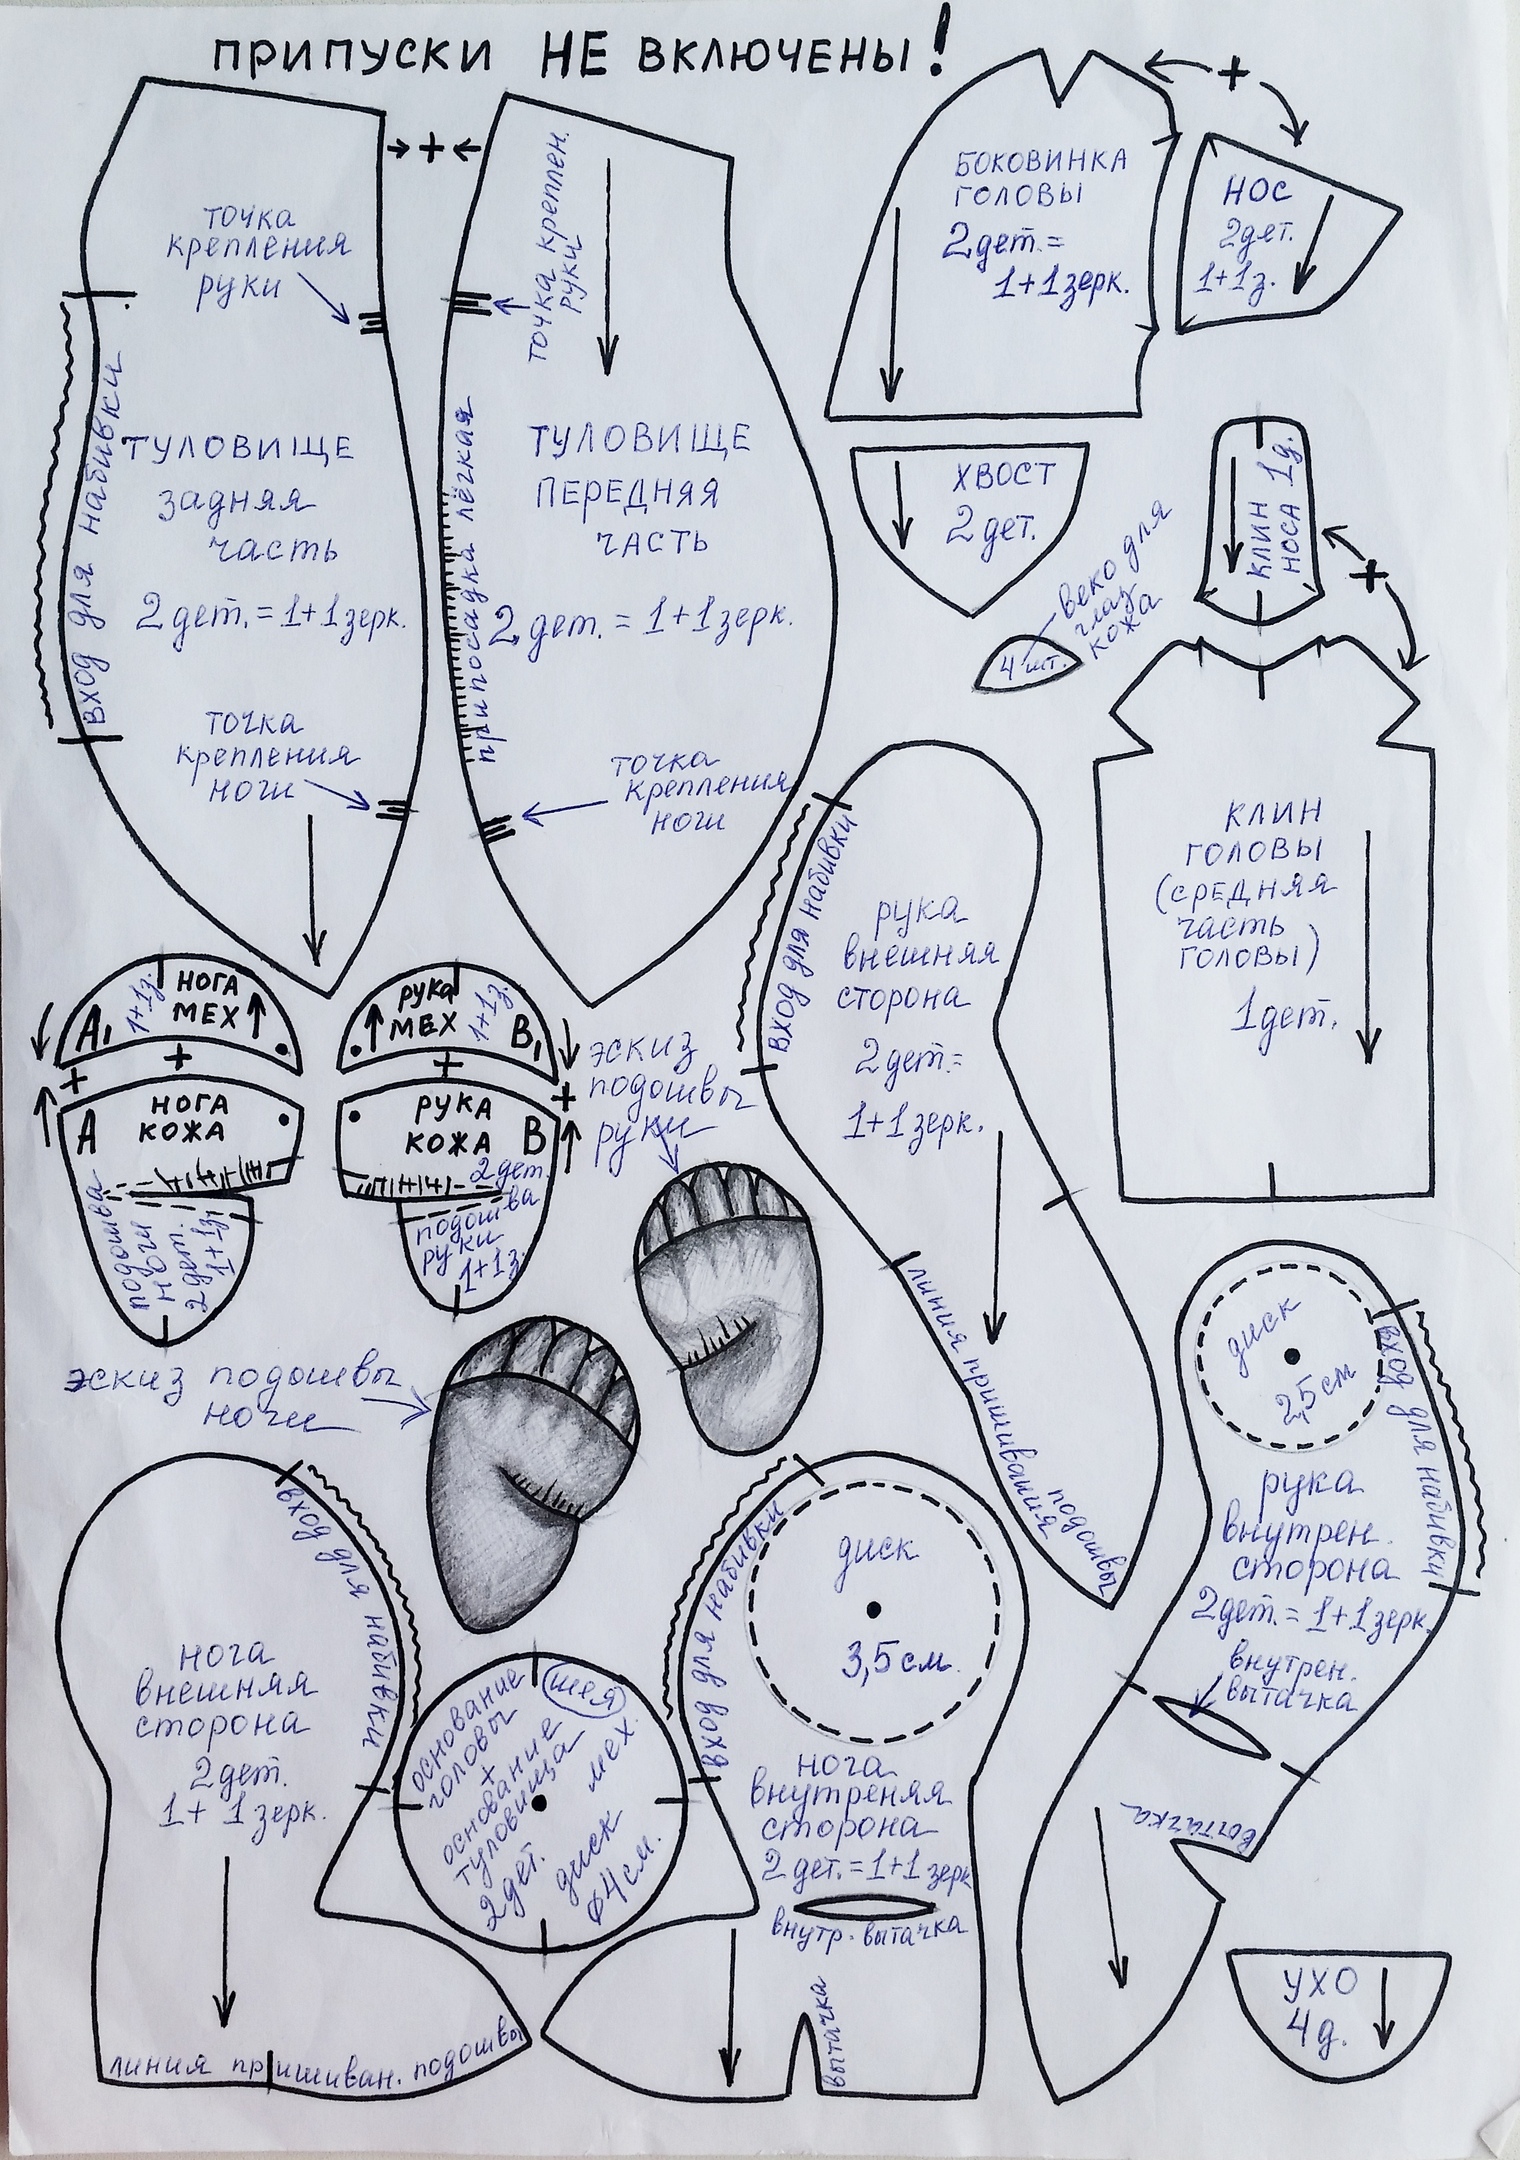 ПРИПУСКИ НЕ ВКЛЮЧЕНЫ!
точка
крепления
руки
вход для набивки
ТУЛОВИЩЕ
задняя
часть
2 дет. = 1+1 зерк.
точка
крепления
ноги
→+←
точка креплен.
руки
присадка лёгкая
ТУЛОВИЩЕ
ПЕРЕДНЯЯ
ЧАСТЬ
2 дет. = 1+1 зерк.
точка
крепления
ноги
БОКОВИНКА
ГОЛОВЫ
2 дет. =
1+1 зерк.
+
НОС
2 дет.
1+1 з.
ХВОСТ
2 дет.
КЛИН
НОСА 1 д.
+
веко для
глаз
кожа
4 шт.
КЛИН
ГОЛОВЫ
(СРЕДНЯЯ
часть
головы)
1 дет.
вход для набивки
рука
внешняя
сторона
2 дет. =
1+1 зерк.
линия пришивания
подошвы
А₁
1+1 з.
НОГА
МЕХ
+
+
А
НОГА
КОЖА
подошва
ноги
2 дет.
1+1 з.
рука
МЕХ
1+1 з.
В₁
+
+
РУКА
КОЖА
В
2 дет.
подошва
руки
1+1 з.
эскиз
подошвы
руки
эскиз подошвы
ноги
диск
2,5 см
вход для набивки
рука
внутрен.
сторона
2 дет. = 1+1 зерк.
внутрен.
вытачка
вытачка
вход для набивки
нога
внешняя
сторона
2 дет.
1+1 зерк.
линия пришиван. подошвы
основание
головы
+
основание
туловища
2 дет.
шея
мех.
диск
⌀4 см.
вход для набивки
диск
3,5 см.
нога
внутреняя
сторона
2 дет. = 1+1 зерк
внутр. вытачка
вытачка
УХО
4 д.